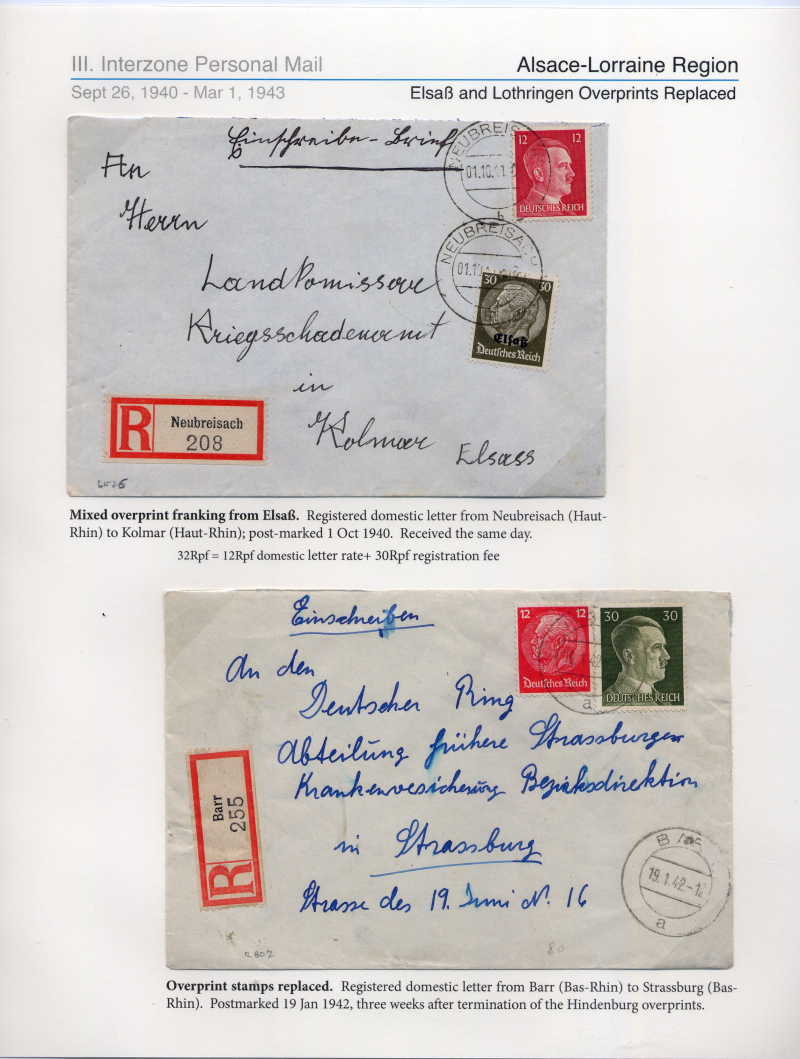 III. Interzone Personal Mail
Alsace-Lorraine Region
Sept 26, 1940 - Mar 1, 1943
Elsaß and Lothringen Overprints Replaced
Einschreibe-Brief
NEUBREISACH
01.10.41
b
12 12
DEUTSCHES REICH
An
Herrn
NEUBREISACH
30 30
Elsaß
Deutsches Reich
Landkomissare
Kriegsschadenamt
in
Kolmar Elsass
R Neubreisach
208
Mixed overprint franking from Elsaß. Registered domestic letter from Neubreisach (Haut-
Rhin) to Kolmar (Haut-Rhin); post-marked 1 Oct 1940. Received the same day.
32Rpf = 12Rpf domestic letter rate+ 30Rpf registration fee
Einschreiben
12
Deutsches Reich
30 30
DEUTSCHES REICH
a
An den
Deutscher Ring
Abteilung frühere Strassburger
Krankenvesicherung Bezirksdirektion
in Strassburg
Strasse des 19. Juni N. 16
R Barr
255
19.1.42.-12
a
80
Overprint stamps replaced. Registered domestic letter from Barr (Bas-Rhin) to Strassburg (Bas-
Rhin). Postmarked 19 Jan 1942, three weeks after termination of the Hindenburg overprints.